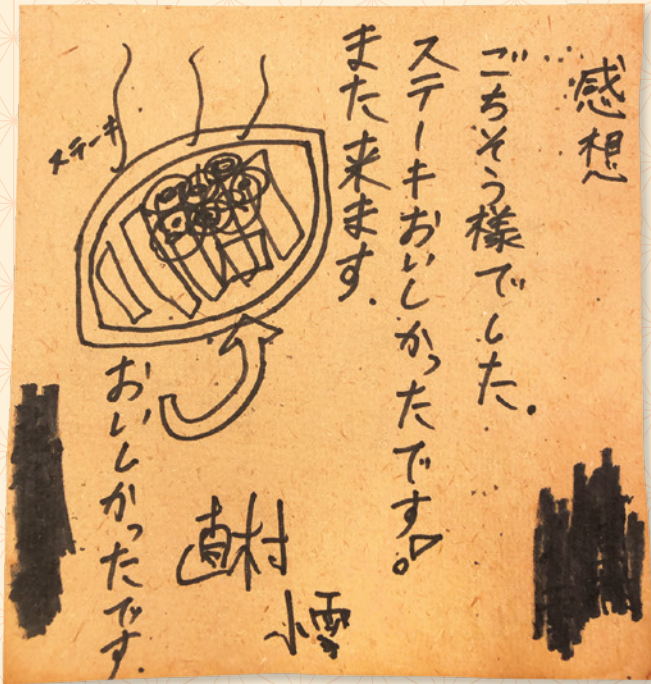 感想
ごちそう様でした。
ステーキおいしかったです。
また来ます.
ステーキ
おいしかったです.